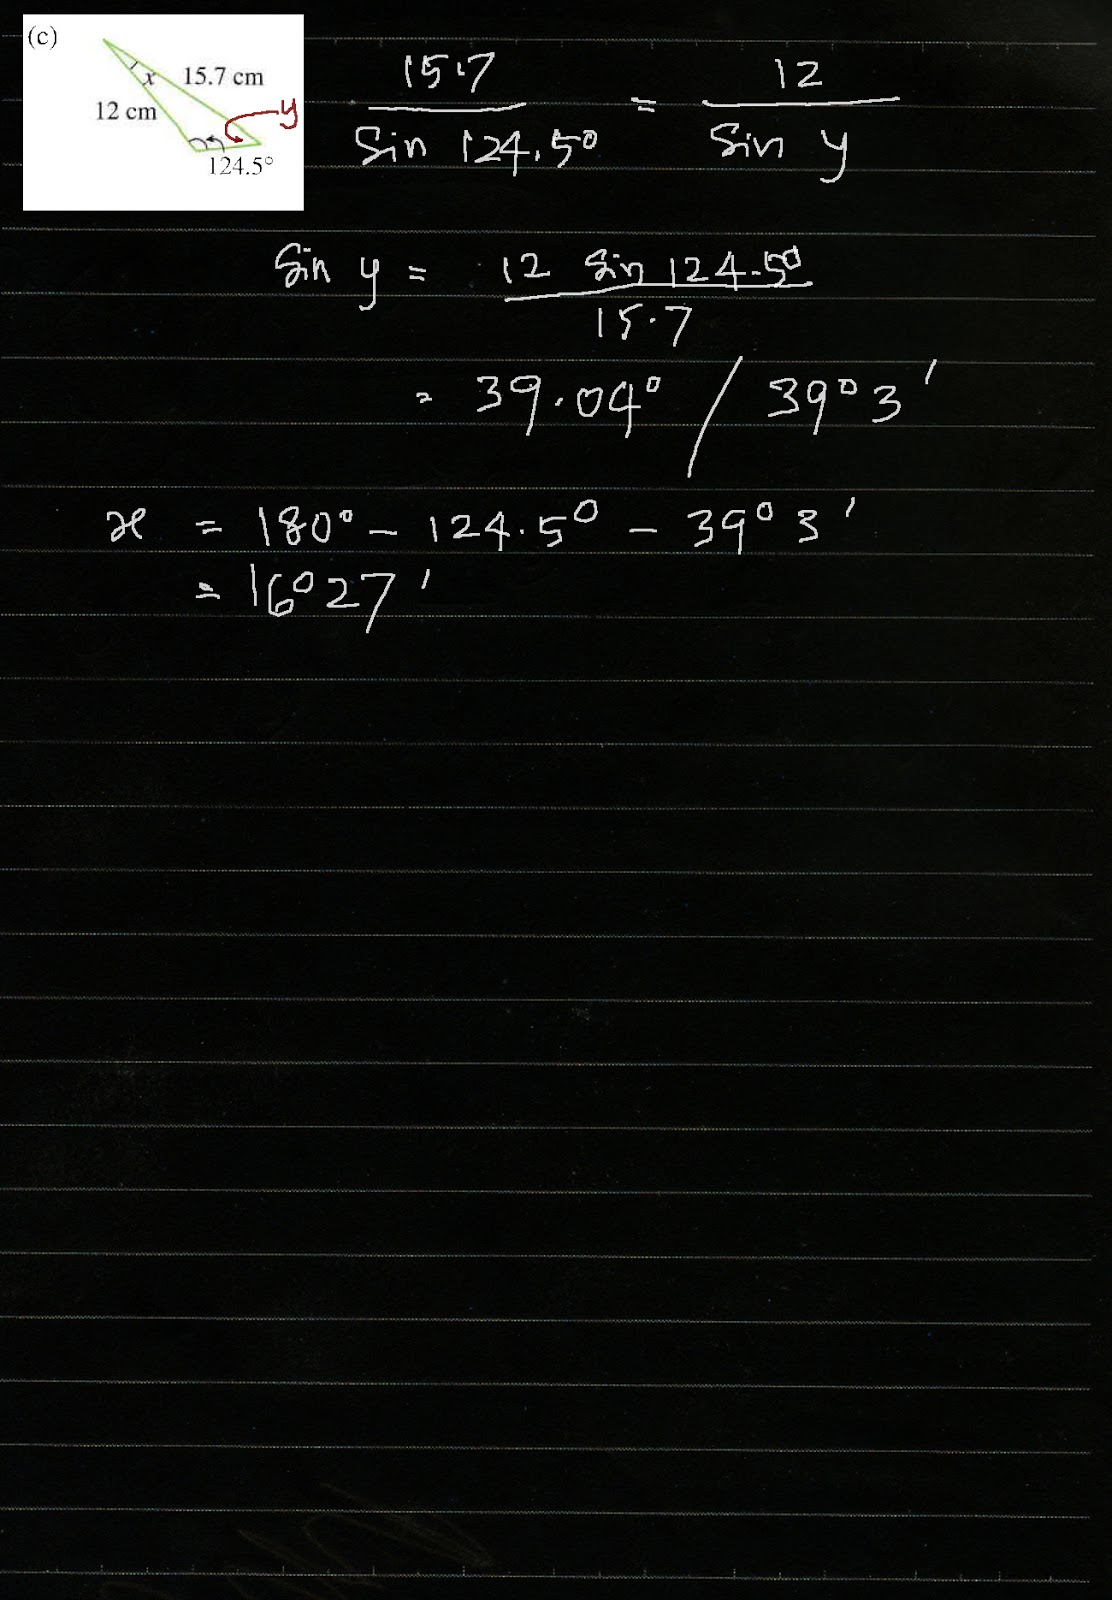 (c)
x 15.7 cm
12 cm
y
124.5°
15.7 / sin 124.5° = 12 / sin y
sin y = 12 sin 124.5° / 15.7
= 39.04° / 39° 3'
x = 180° - 124.5° - 39° 3'
= 16° 27'